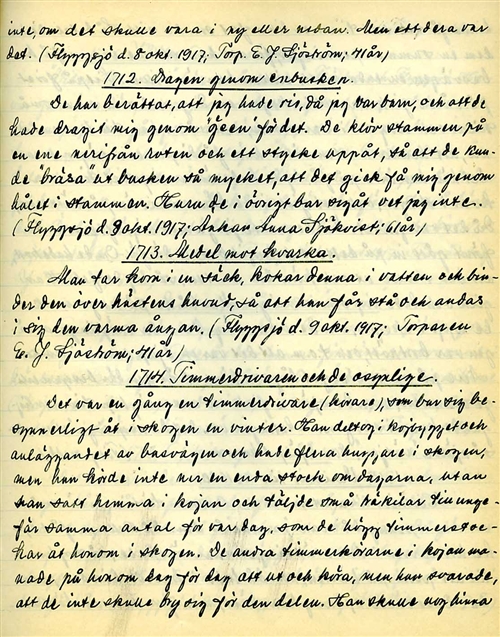 inte, om det skulle vara i ny eller nedan. Men ettdera var
det. (Flygsjö d. 8 okt. 1917; Torp. E. J. Sjöström; 41 år)
1712. Dragen genom enbusken.
De har berättat, att jag hade ris, då jag var barn, och att de
hade dragit mig genom "geen" för det. De klöv stammen på
en ene nerifrån roten och ett stycke uppåt, så att de kun-
de "bräsa" ut busken så mycket, att det gick få mig genom
hålet i stammen. Huru de i övrigt bar sig åt vet jag inte.
(Flygsjö d. 9 okt. 1917; Änkan Anna Sjökvist; 61 år)
1713. Medel mot kvarka.
Man tar korn i en säck, kokar denna i vatten och bin-
der den över hästens huvud, så att han får stå och andas
i sig den varma ångan. (Flygsjö d. 9 okt. 1917; Torparen
E. J. Sjöström; 41 år)
1714. Timmerdrivaren och de osynlige.
Det var en gång en timmerdrivare (körare), som bar sig be-
synnerligt åt i skogen en vinter. Han deltog i kojbygget och
anläggandet av basvägen och hade flera huggare i skogen,
men han körde inte ner en enda stock om dagarna, utan
han satt hemma i kojan och täljde små träkilar till unge-
fär samma antal för var dag, som de högg timmerstoc-
kar åt honom i skogen. De andra timmerkörarne i kojan ma-
nade på honom dag för dag att ut och köra, men han svarade,
att de inte skulle bry sig för den delen. Han skulle nog hinna